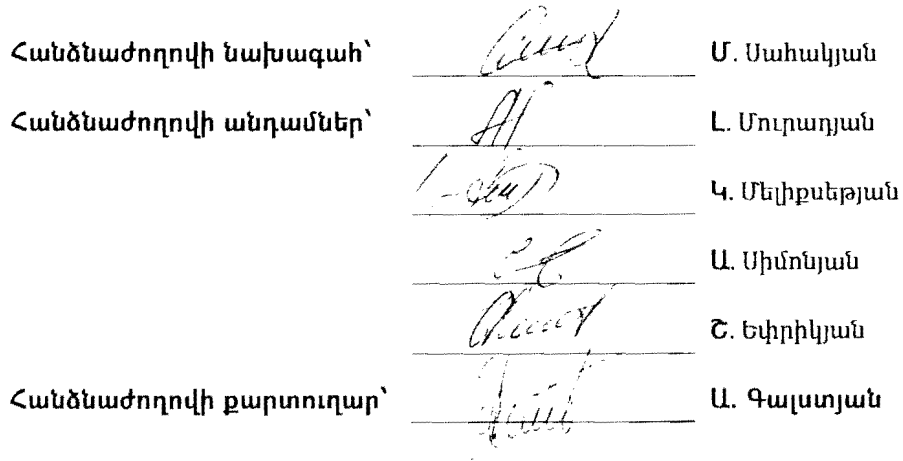 Հանձնաժողովի նախագահ՝ Մ. Սահակյան
Հանձնաժողովի անդամներ՝ Լ. Մուրադյան
Կ. Մելիքսեթյան
Ա. Սիմոնյան
Շ. Եփրիկյան
Հանձնաժողովի քարտուղար՝ Ա. Գալստյան